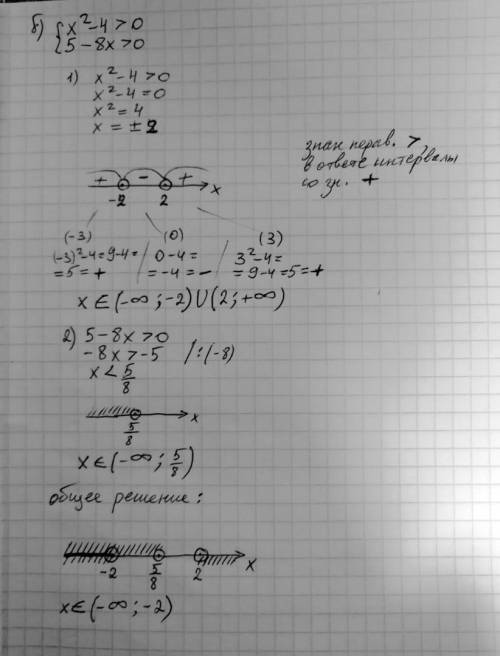 б) { x² - 4 > 0
{ 5 - 8x > 0
1) x² - 4 > 0
x² - 4 = 0
x² = 4
x = ± 2
знак нерав. >,
в ответе интервалы
со зн. +
+ - + x
-2 2
(-3) (0) (3)
(-3)² - 4 = 9 - 4 = / 0 - 4 = / 3² - 4 =
= 5 = + / = -4 = - / = 9 - 4 = 5 = +
x ∈ (-∞; -2) ∪ (2; +∞)
2) 5 - 8x > 0
-8x > -5 / : (-8)
x < 5/8
x
5/8
x ∈ (-∞; 5/8)
общее решение:
x
-2 5/8 2
x ∈ (-∞; -2)